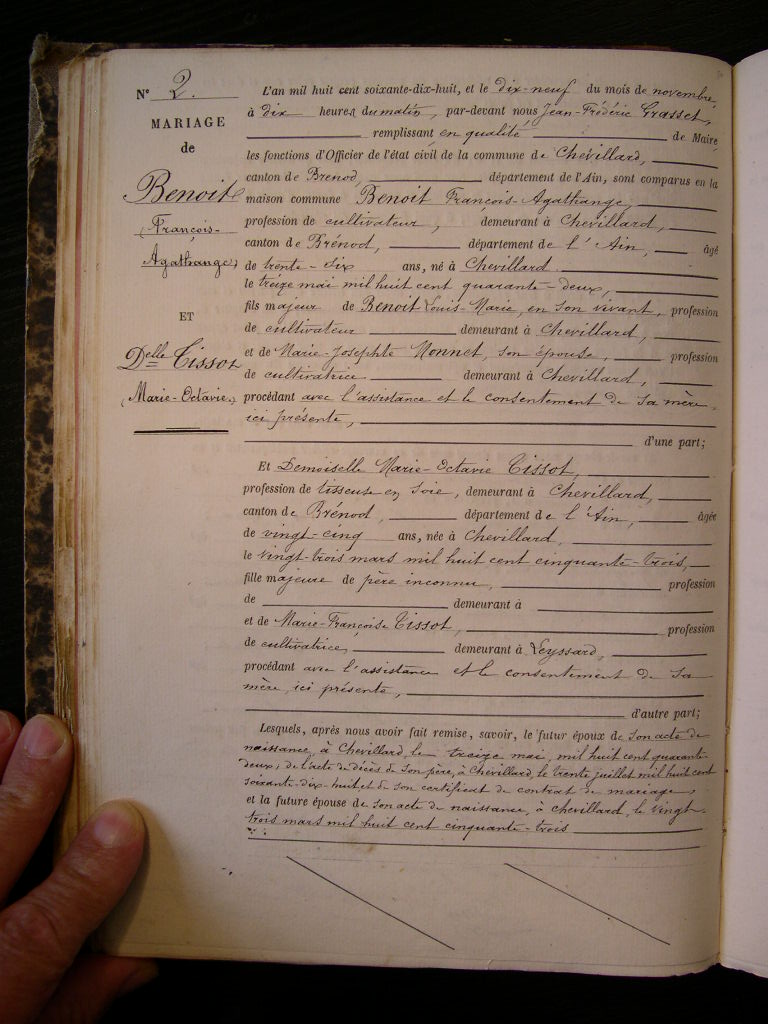 N° 2.
MARIAGE
de
Benoit
(François-
Agathange)
ET
Delle Tissot
(Marie-Octavie)
L'an mil huit cent soixante-dix-huit, et le dix-neuf du mois de novembre,
à dix heures du matin, par-devant nous Jean-Frédéric Grasset,
remplissant en qualité de Maire
les fonctions d'Officier de l'état civil de la commune de Chevillard,
canton de Brenod, département de l'Ain, sont comparus en la
maison commune Benoit François-Agathange,
profession de cultivateur, demeurant à Chevillard,
canton de Brénod, département de l'Ain, âgé
de trente-six ans, né à Chevillard
le treize mai mil huit cent quarante-deux,
fils majeur de Benoit Louis-Marie, en son vivant, profession
de cultivateur demeurant à Chevillard,
et de Marie-Josephte Monnet, son épouse, profession
de cultivatrice demeurant à Chevillard,
procédant avec l'assistance et le consentement de sa mère,
ici présente,
d'une part;
Et Demoiselle Marie-Octavie Tissot,
profession de tisseuse en soie, demeurant à Chevillard,
canton de Brénod, département de l'Ain, âgée
de vingt-cinq ans, née à Chevillard,
le vingt-trois mars mil huit cent cinquante-trois,
fille majeure de père inconnu, profession
de demeurant à
et de Marie-Françoise Tissot, profession
de cultivatrice, demeurant à Leyssard,
procédant avec l'assistance et le consentement de sa
mère, ici présente,
d'autre part;
Lesquels, après nous avoir fait remise, savoir, le futur époux de son acte de
naissance, à Chevillard, le treize mai, mil huit cent quarante-
deux; de l'acte de décès de son père, à Chevillard, le trente juillet mil huit cent
soixante-dix-huit et de son certificat de contrat de mariage,
et la future épouse de son acte de naissance, à Chevillard, le vingt-
trois mars mil huit cent cinquante-trois